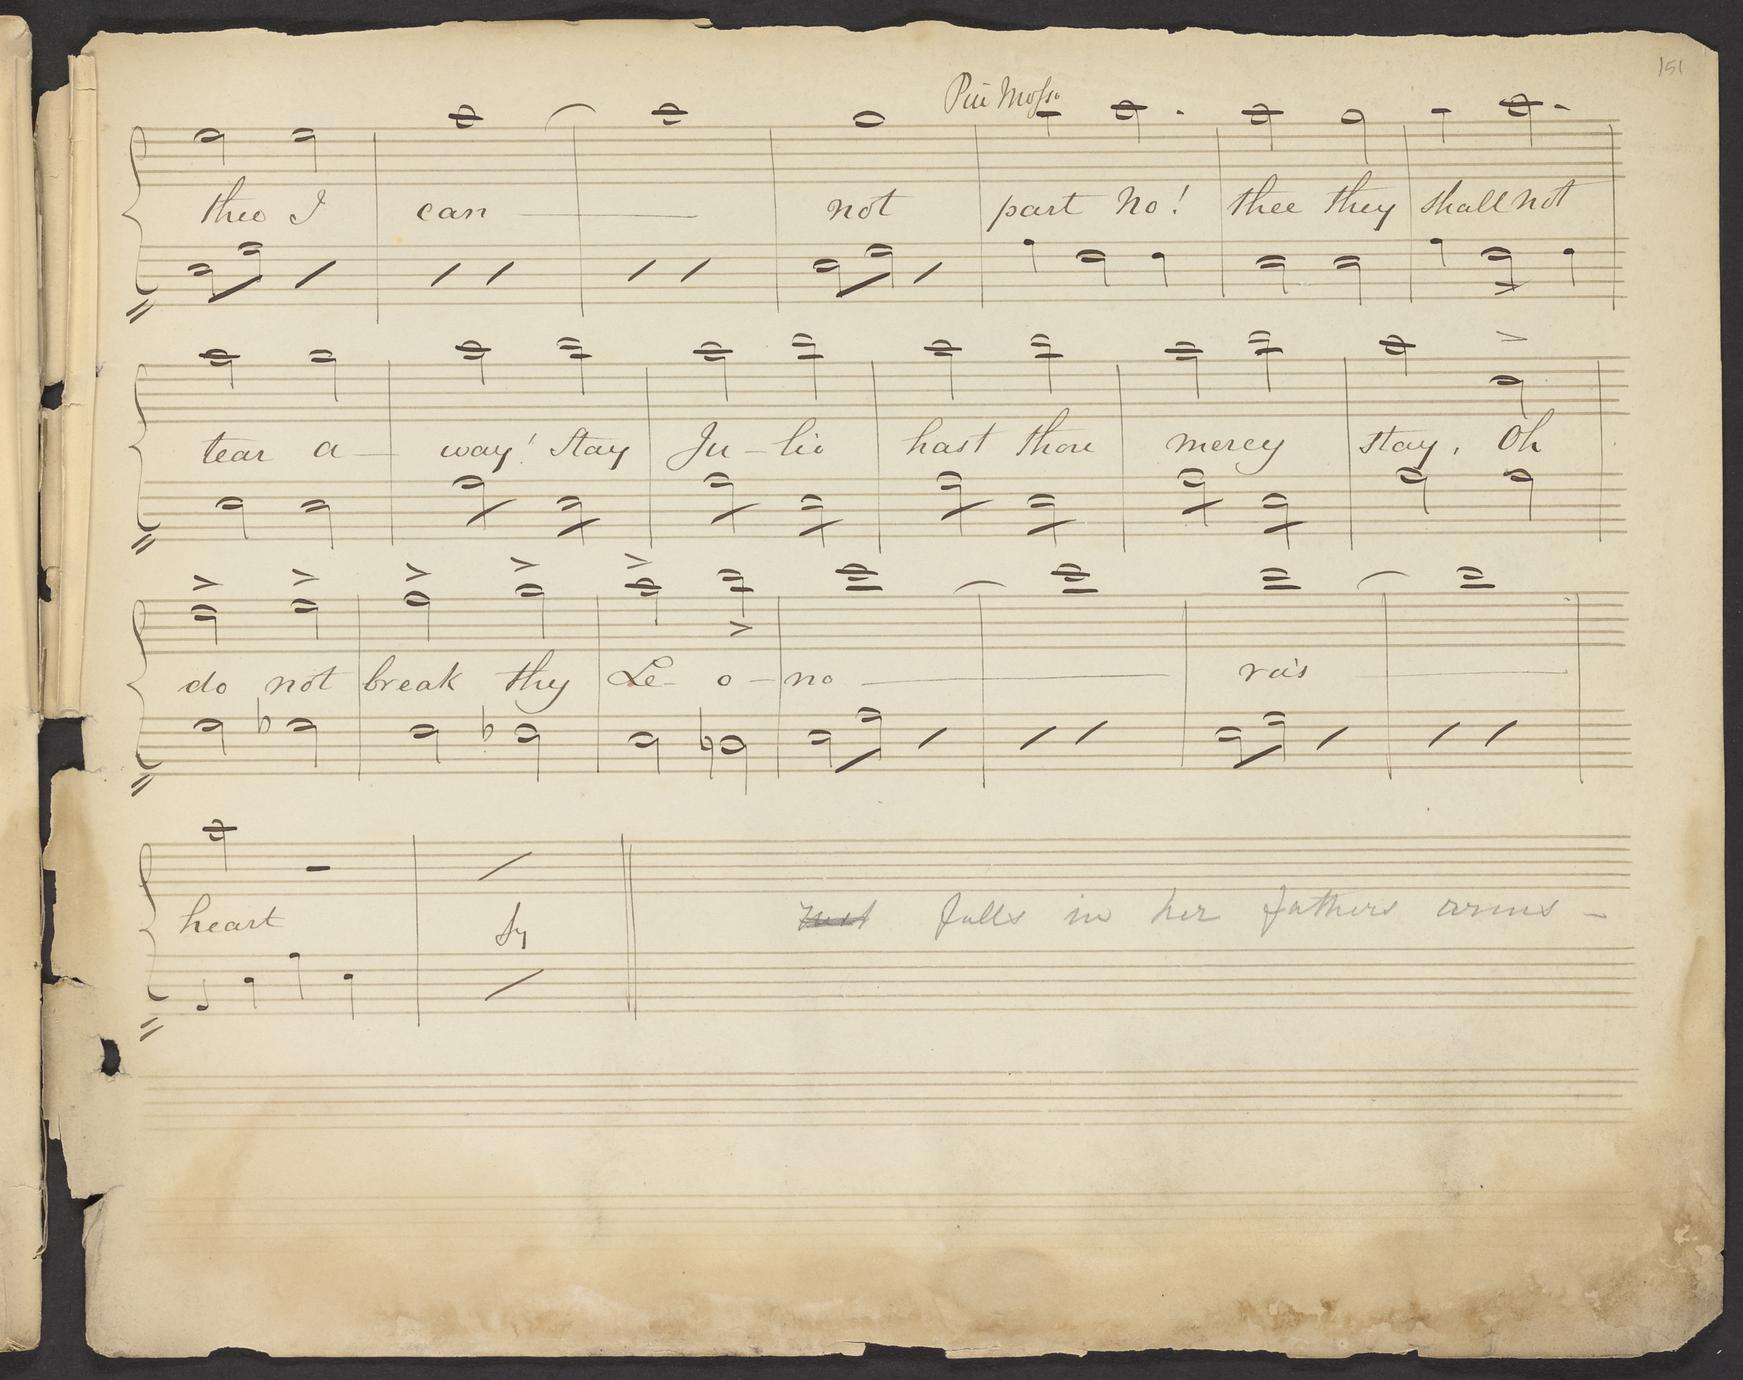 151
Piu Mosso
thee I can not part No! thee they shall not
tear a- way! Stay Ju-lio hast thou mercy stay, Oh
do not break thy Le-o-no ra's
heart
falls in her fathers arms -